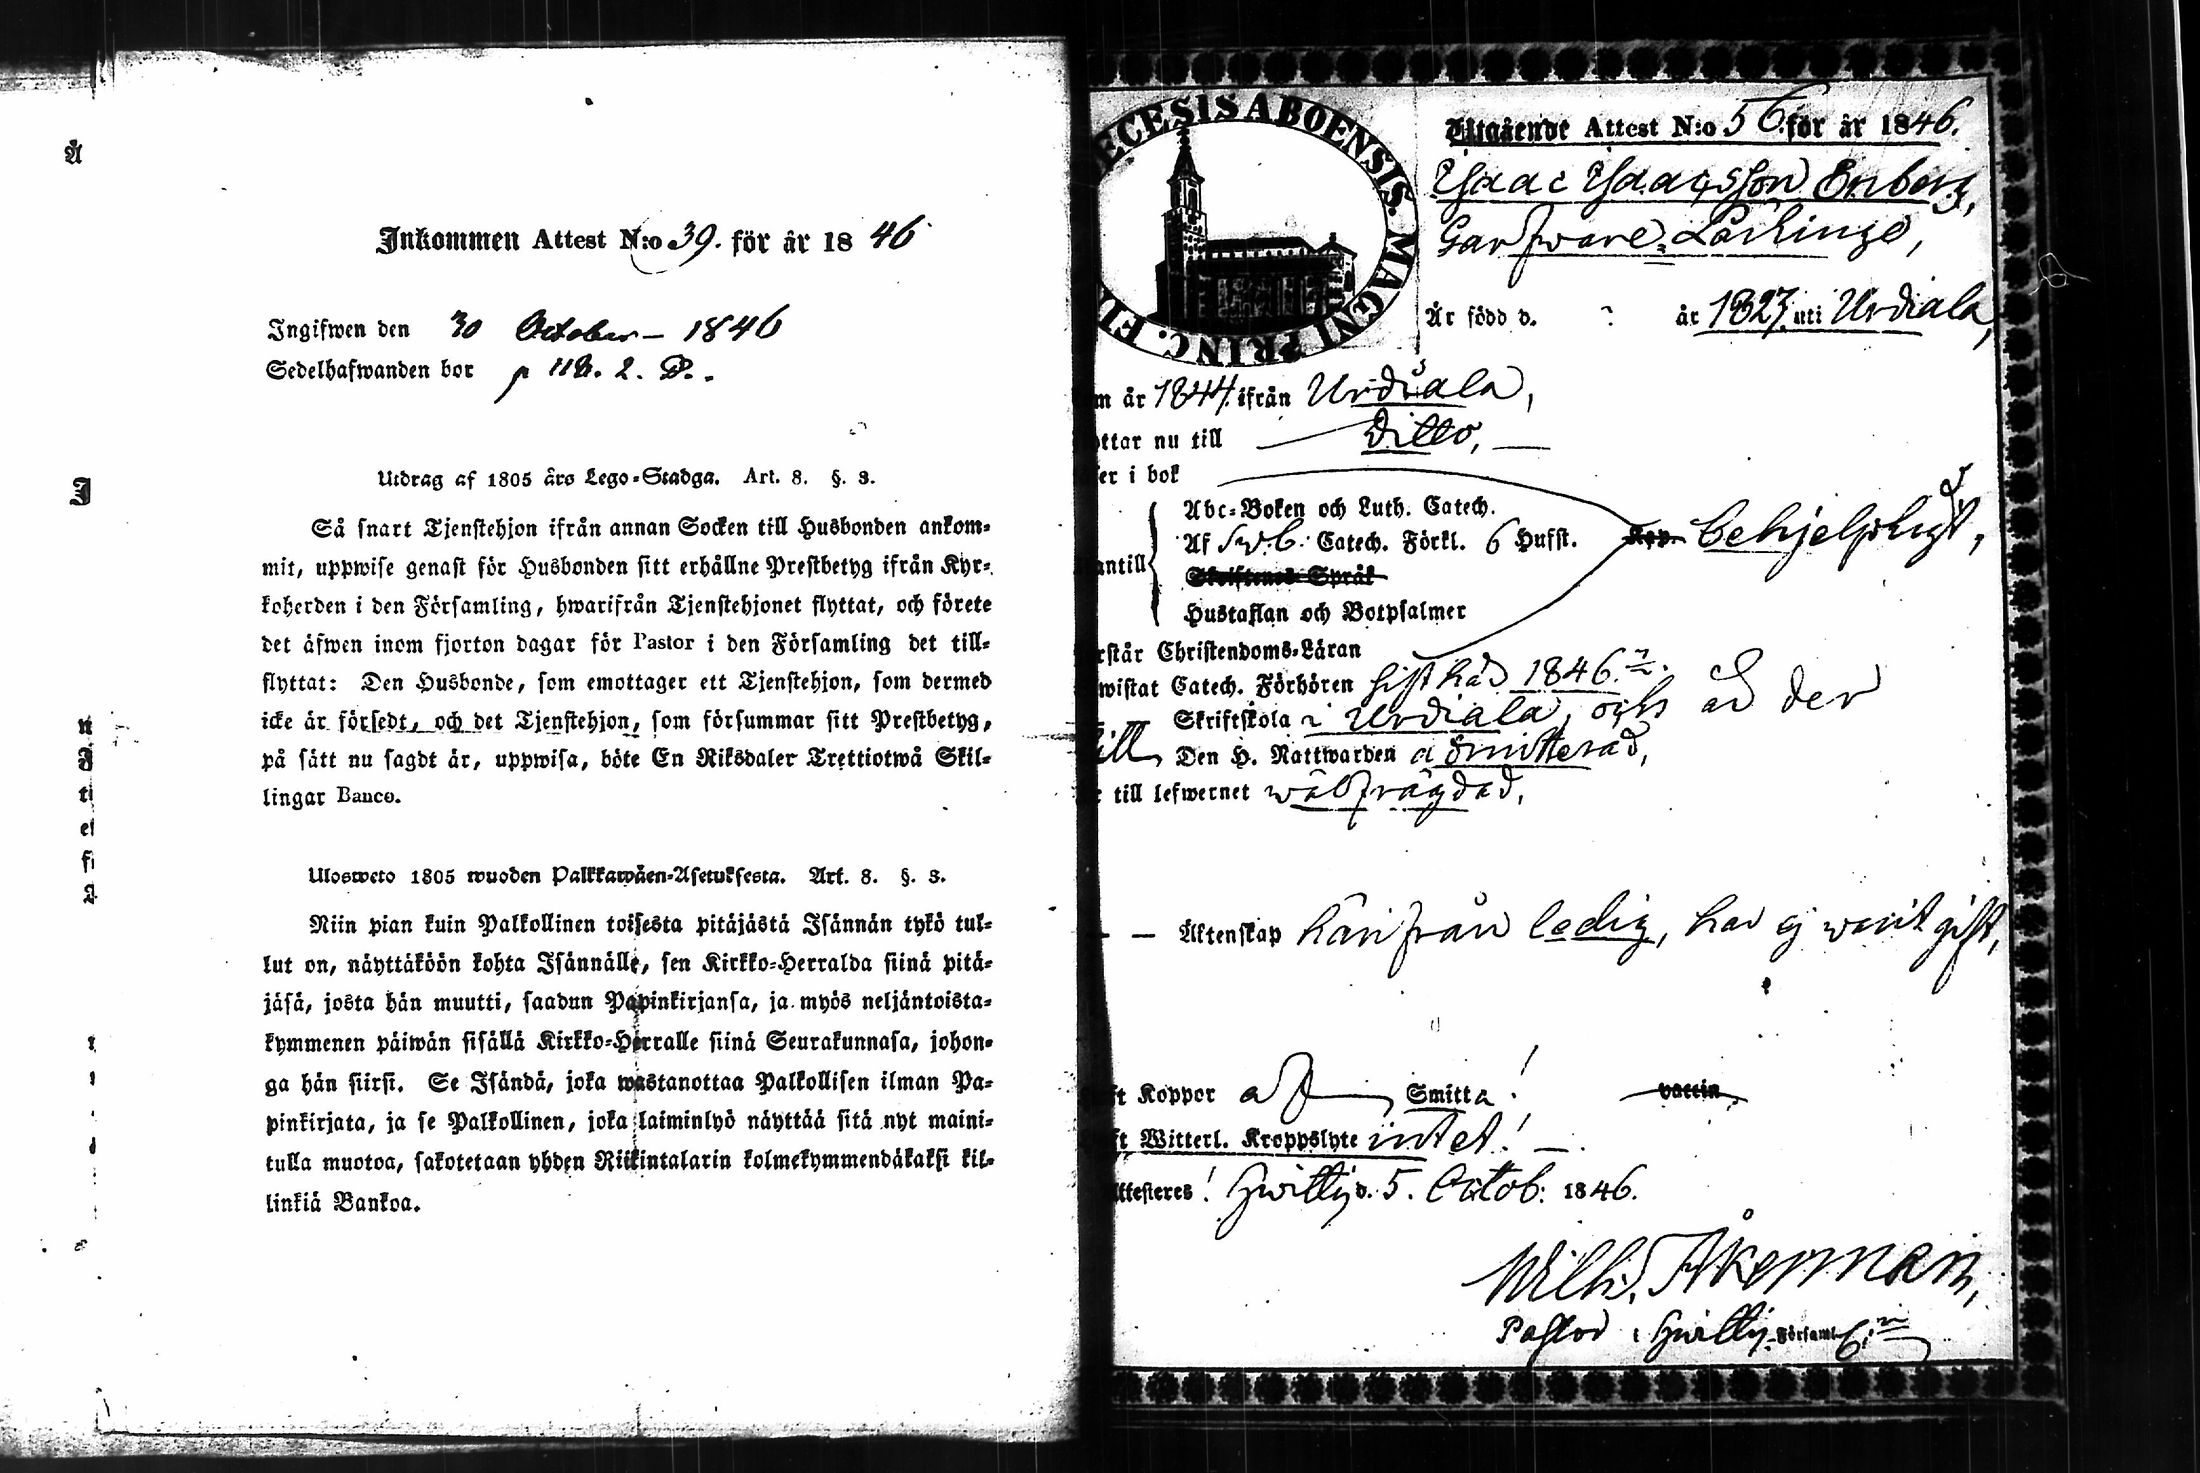 Inkommen Attest N:o 39. för år 1846
Ingifwen den 30 October – 1846
Sedelhafwanden bor
Utdrag af 1805 års Lego-Stadga. Art. 8. §. 3.
Så snart Tjenstehjon ifrån annan Socken till Husbonden ankom-
mit, uppwise genast för Husbonden sitt erhållne Prestbetyg ifrån Kyr-
koherden i den Församling, hwarifrån Tjenstehjonet flyttat, och förete
det äfwen inom fjorton dagar för Pastor i den Församling det till-
flyttat: Den Husbonde, som emottager ett Tjenstehjon, som dermed
icke är försedt, och det Tjenstehjon, som försummar sitt Prestbetyg,
på sätt nu sagdt är, uppwisa, böte En Riksdaler Trettiotwå Skil-
lingar Banco.
Ulosweto 1805 wuoden Palkkawäen-Asetuksesta. Art. 8. §. 3.
Niin pian kuin Palkollinen toisesta pitäjästä Isännän tykö tul-
lut on, näyttäköön kohta Isännälle, sen Kirkko-Herralda siinä pitä-
jäsä, josta hän muutti, saadun Papinkirjansa, ja myös neljäntoista-
kymmenen päiwän sisällä Kirkko-Herralle siinä Seurakunnasa, johon-
ga hän siirsi. Se Isändä, joka wastanottaa Palkollisen ilman Pa-
pinkirjata, ja se Palkollinen, joka laiminlyö näyttää sitä nyt maini-
tulla muotoa, sakotetaan yhden Riikintalarin kolmekymmendäkaksi kil-
linkiä Bankoa.
ECESIS ABOENSIS. MAGNI PRINC. FI
Utgående Attest N:o 56 för år 1846.
Isaac Isaacsson Enberg,
Garfware-Lärlinge,
Är född d. ? år 1827 uti Urdiala,
m år 1844 ifrån Urdiala,
ottar nu till Ditto,
er i bok
Abc-Boken och Luth. Catech.
Af Sv. b. Catech. Förkl. 6 Hufst. behjelpligt,
antill
Skriftenes Språk
Hustaflan och Botpsalmer
rstår Christendoms-Läran
wistat Catech. Förhören sist här 1846.
Skriftskola i Urdiala, och är der
ill Den H. Nattwarden admitterad,
till lefwernet wälfrägdad,
– – Äktenskap härifrån ledig, har ej warit gift,
ft Koppor af Smitta! vaccin
ft Witterl. Kroppslyte intet! –
ttesteres! Hwittis d. 5. Octob: 1846.
Wilh. Åkerman,
Pastor i Hwittis Församl